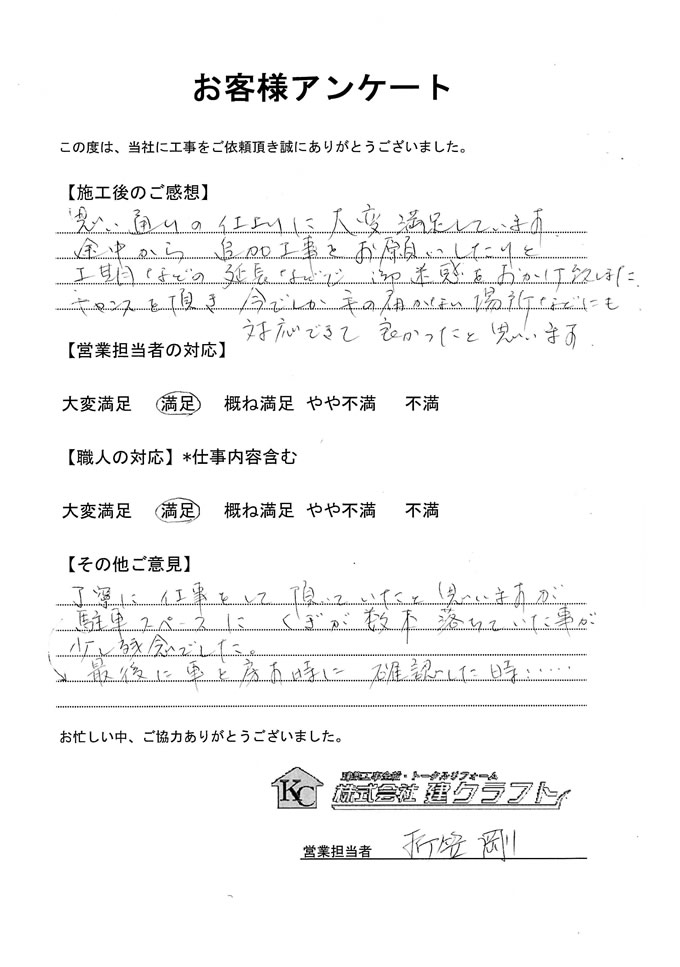 お客様アンケート
この度は、当社に工事をご依頼頂き誠にありがとうございました。
【施工後のご感想】
思い通りの仕上りに大変満足しています
途中から 追加工事をお願いしたりと
工期などの延長などで 御迷惑をおかけ致しました
チャンスを頂き 今でしか手の届かない場所などにも
対応できて 良かったと思います
【営業担当者の対応】
大変満足 満足 概ね満足 やや不満 不満
【職人の対応】*仕事内容含む
大変満足 満足 概ね満足 やや不満 不満
【その他ご意見】
丁寧に仕事をして頂いていたと思いますが
駐車スペースに くぎが数本落ちていた事が
少し残念でした。
最後に車を戻す時に 確認した時……
お忙しい中、ご協力ありがとうございました。
建築工事全般・トータルリフォーム
KC 株式会社 建クラフト
営業担当者 折笠 剛